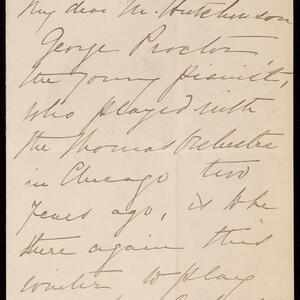 My dear Mr. Hutchinson
George Proctor
the young pianist,
who played with
the Thomas Orchestra
in Chicago two
years ago, is to be
there again this
winter to play